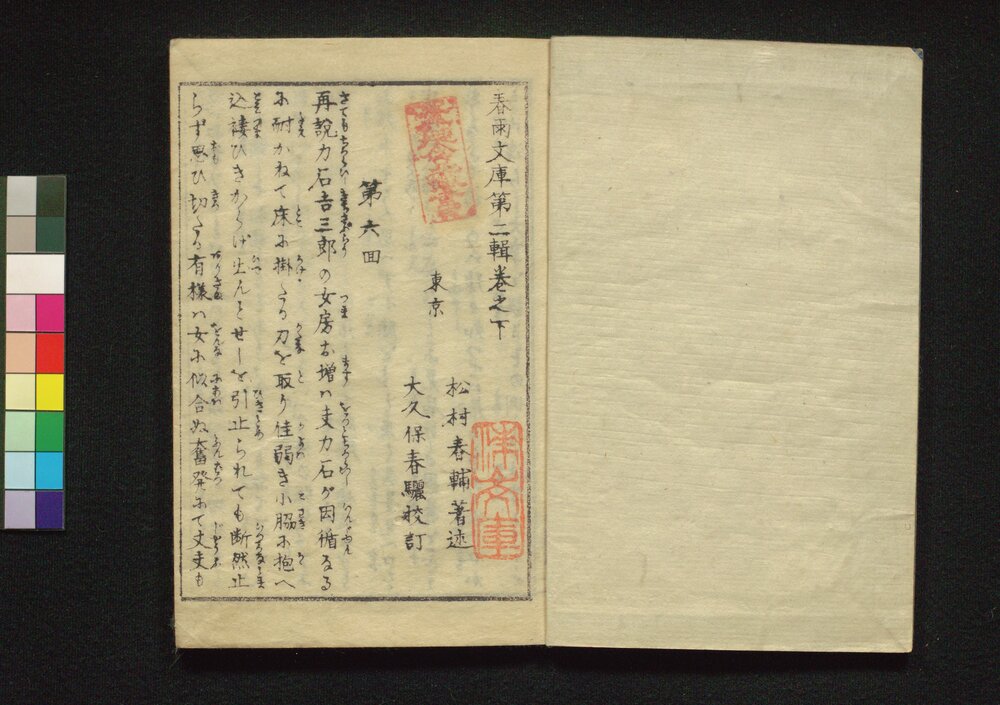 春雨文庫第二輯巻之下
東京
松村春輔著述
大久保春驪校訂
第六回
再説力石吉三郎の女房お増ハ夫力石が因循なる
に耐かねて床に掛たる刀を取り佳弱き小脇に抱へ
込褄ひきからげ出んとせしを引止られても断然止
らず思ひ切たる有様ハ女に似合ぬ奮発にて丈夫も